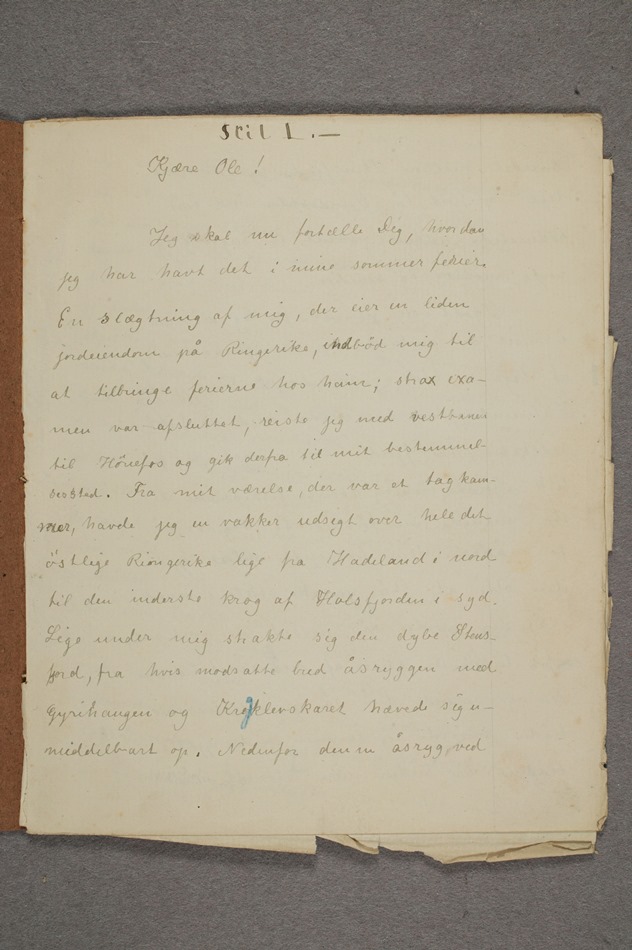 Stil 1.—
Kjære Ole!
Jeg skal nu fortælle Dig, hvordan
jeg har havt det i mine sommerferier.
En slægtning af mig, der eier en liden
jordeiendom på Ringerike, indbød mig til
at tilbringe ferierne hos ham; strax exa-
men var afsluttet, reiste jeg med vestbanen
til Hönefos og gik derfra til mit bestemmel-
sessted. Fra mit værelse, der var et tagkam-
mer, havde jeg en vakker udsigt over hele det
östlige Ringerike lige fra Hadeland i nord
til den inderste krog af Holsfjorden i syd.
Lige under mig strakte sig den dybe Stens-
fjord, fra hvis modsatte bred åsryggen med
Gyrihaugen og Krogklevskaret hævede sig u-
middelbart op. Nedenfor denne åsryg, ved